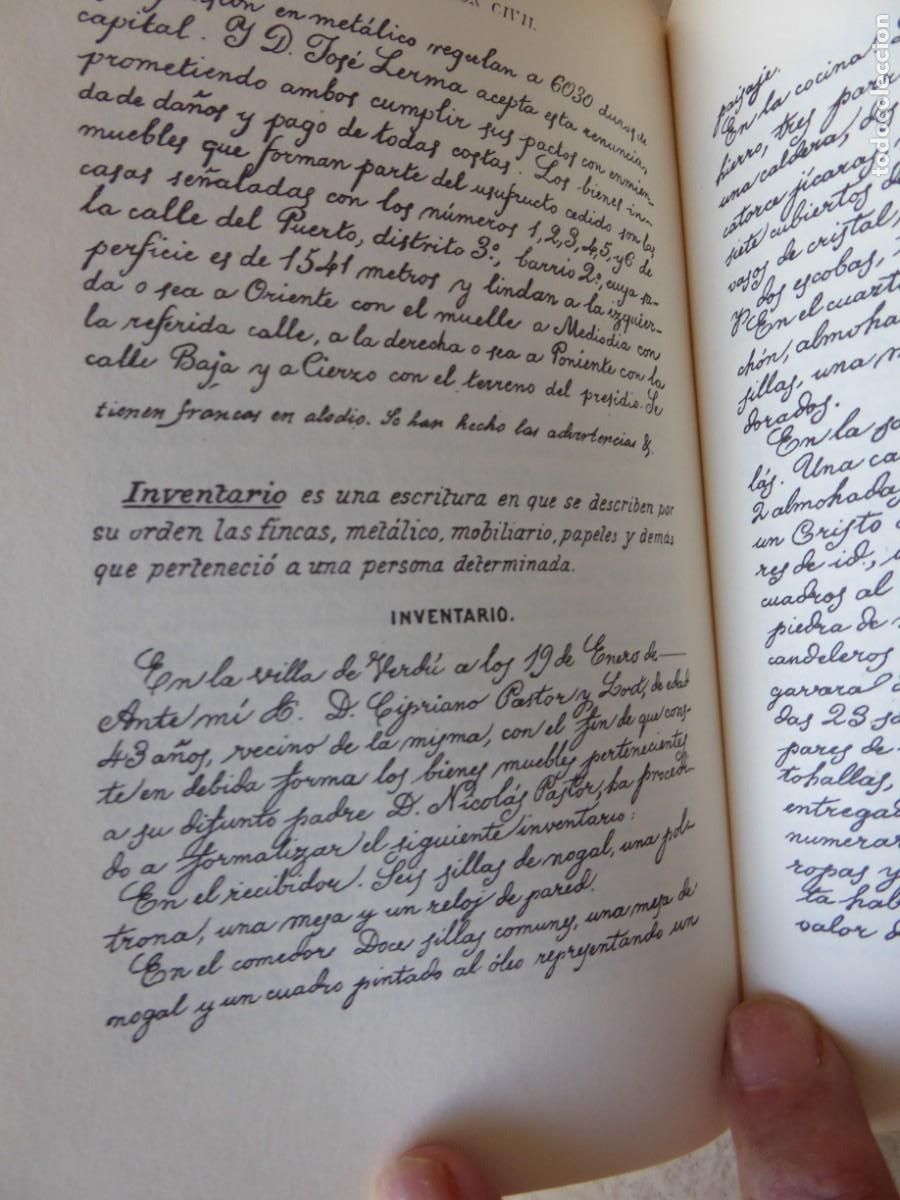 CIVIL.
en metálico regulan a 6030 duros de
capital. Y D. José Lerma acepta esta renuncia,
prometiendo ambos cumplir sus pactos con enmien
da de daños y pago de todas costas. Los bienes in-
muebles que forman parte del usufructo cedido son las
casas señaladas con los números 1, 2, 3, 4, 5, y 6 de
la calle del Puerto, distrito 3º, barrio 2º, cuya su-
perficie es de 1541 metros y lindan a la izquier-
da o sea a Oriente con el muelle a Mediodia con
la referida calle, a la derecha o sea a Poniente con la
calle Baja y a Cierzo con el terreno del presidio. Se
tienen francas en alodio. Se han hecho las advertencias &.
Inventario es una escritura en que se describen por
su orden las fincas, metálico, mobiliario, papeles y demás
que perteneció a una persona determinada.
INVENTARIO.
En la villa de Verdú a los 19 de Enero de—
Ante mí &. D. Cipriano Pastor y , de edad
43 años, vecino de la misma, con el fin de que cons-
te en debida forma los bienes muebles pertenecientes
a su difunto padre D. Nicolás Pastor, ha procedi-
do a formalizar el siguiente inventario:
En el recibidor. Seis sillas de nogal, una pol-
trona, una mesa y un reloj de pared.
En el comedor Doce sillas comunes, una mesa de
nogal y un cuadro pintado al óleo representando un
paisaje.
En la cocina
hierro, tres
una caldera,
catorce jícaras,
siete cubiertos de
vasos de cristal,
dos escobas,
En el
chón,
sillas, una
dorados.
En la
lás. Una
2
un Cristo
res de id.,
cuadros al
piedra de
candeleros
das 23
pares de
tohallas,
ropas y
valor
todocoleccion